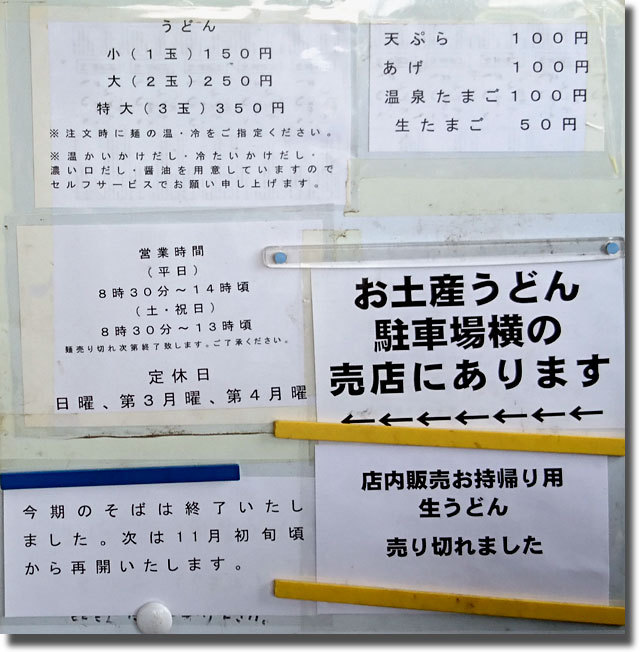 うどん
小(1玉)150円
大(2玉)250円
特大(3玉)350円
※注文時に麺の温・冷をご指定ください。
※温かいかけだし・冷たいかけだし・
濃い口だし・醤油を用意していますので
セルフサービスでお願い申し上げます。
天ぷら 100円
あげ 100円
温泉たまご 100円
生たまご 50円
営業時間
(平日)
8時30分~14時頃
(土・祝日)
8時30分~13時頃
麺売り切れ次第終了致します。ご了承ください。
定休日
日曜、第3月曜、第4月曜
お土産うどん
駐車場横の
売店にあります
←←←←←←←←
店内販売お持帰り用
生うどん
売り切れました
今期のそばは終了いたし
ました。次は11月初旬頃
から再開いたします。